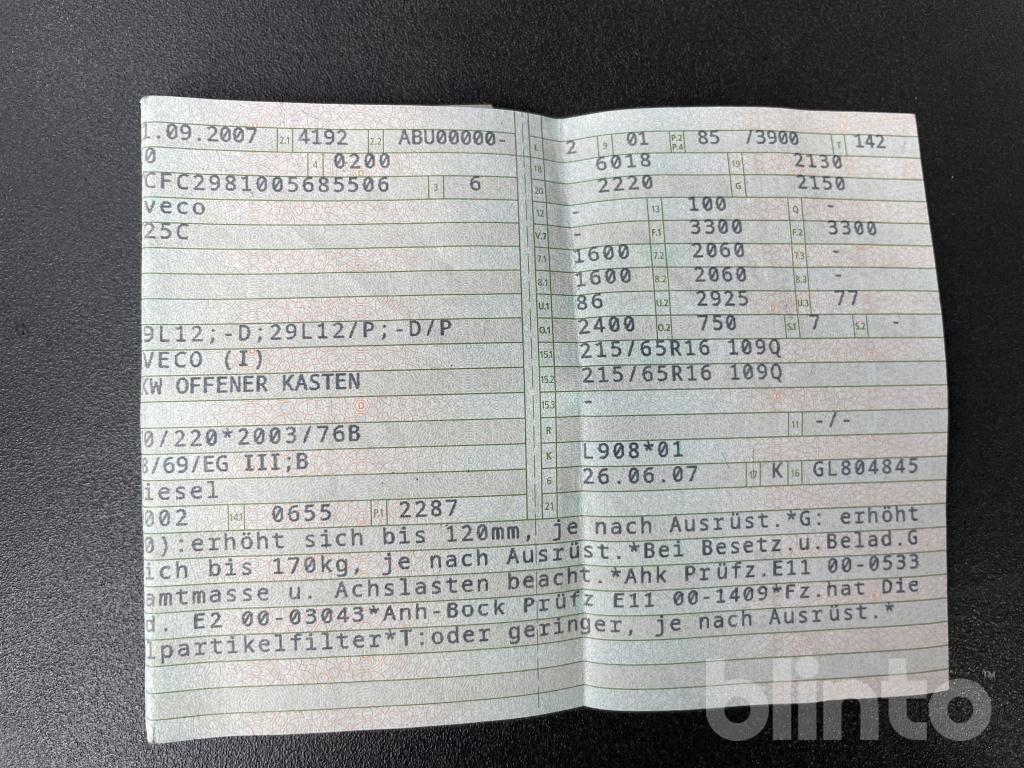 1.09.2007 2.1 4192 2.2 ABU00000- L 2 9 01 P.2 P.4 85 /3900 T 142
0 4 0200 18 6018 19 2130
CFC2981005685506 3 6 20 2220 G 2150
veco 12 - 13 100 Q -
25C V.7 - F.1 3300 F.2 3300
7.1 1600 7.2 2060 7.3 -
8.1 1600 8.2 2060 8.3 -
U.1 86 U.2 2925 U.3 77
9L12;-D;29L12/P;-D/P O.1 2400 O.2 750 S.1 7 S.2 -
VECO (I) 15.1 215/65R16 109Q
KW OFFENER KASTEN 15.2 215/65R16 109Q
15.3 -
0/220*2003/76B R 11 -/-
8/69/EG III;B K L908*01
iesel 6 26.06.07 17 K 16 GL804845
002 14.1 0655 P.1 2287 21
0):erhöht sich bis 120mm, je nach Ausrüst.*G: erhöht
ich bis 170kg, je nach Ausrüst.*Bei Besetz.u.Belad.G
amtmasse u. Achslasten beacht.*Ahk Prüfz.E11 00-0533
d. E2 00-03043*Anh-Bock Prüfz E11 00-1409*Fz.hat Die
lpartikelfilter*T:oder geringer, je nach Ausrüst.*
blinto™